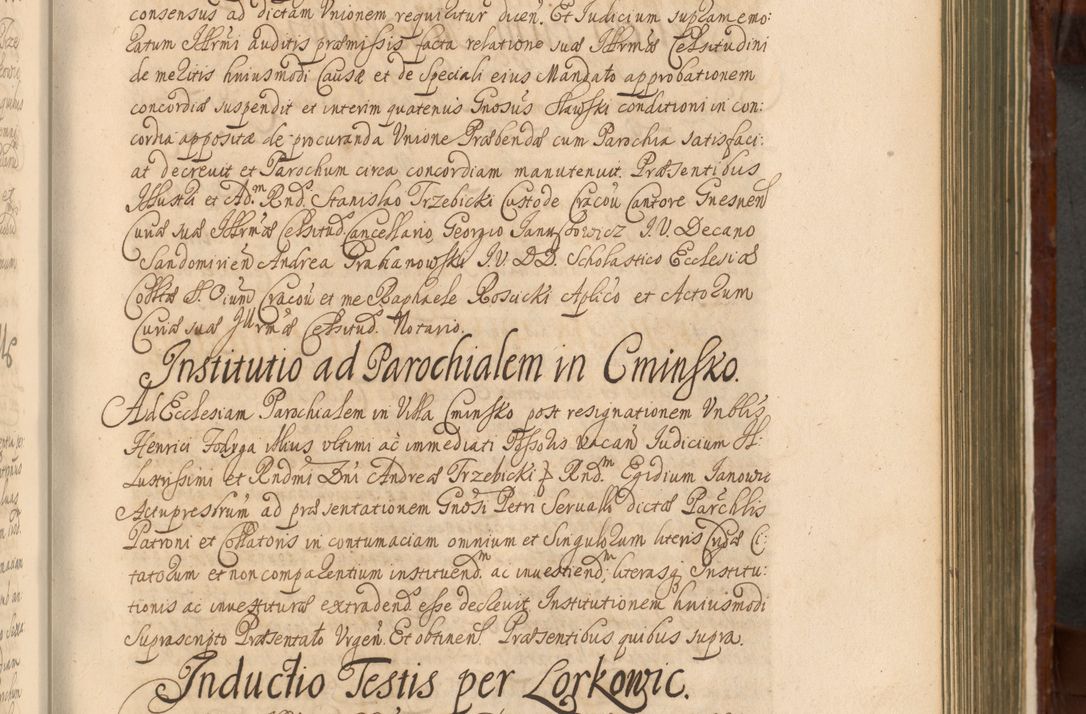 consensus ad dictam Unionem requiratur dicen. Et Iudicium supramemo:
ratum Illrmi auditis præmissis facta relatione suæ Illrmæ Celsitudini
de meritis huiusmodi Causæ et de speciali eius Mandato approbationem
concordiæ suspendit et interim quatenus Gnosus Slawski conditioni in con:
cordia appositæ de procuranda Unione Præbendæ cum Parochia satisfaci:
at decrevit et Parochum circa concordiam manutenuit. Præsentibus
Illustri et Ad.m Rnd. Stanislao Trzebicki Custode Cracou Cantore Gnesnen
Curiæ suæ Illrmæ Celsitud. Cancellario, Georgio Januszowicz I.V. Decano
Sandomirien Andrea Grabanowski I.V.D.D. Scholastico Ecclesiæ
Colltæ SS. Oium Cracou et me Raphaele Roscicki Aplico et Actorum
Curiæ suæ Illrmæ Celsitud. Notario.
Institutio ad Parochialem in Cminsko.
Ad Ecclesiam Parochialem in Villa Cminsko post resignationem Vnblis
Henrici Fodyga illius ultimi ac immediati Possoris vacan Iudicium Il:
Lustrissimi et Rndmi Dni Andreæ Trzebicki Rnd.m Egidium Janowic
Actu presbrum ad præsentationem Gnosi Petri Servalli dictæ Parchlis
Patroni et Collatoris in contumaciam omnium et singulorum literis Cridæ Ci:
tatorum et non comparentium instituend.m ac investiend.m literasq Institu:
tionis ac investituræ extradend. esse decrevit Institutionem huiusmodi
Suprascripto Præsentato Urgen. Et obtinen. Præsentibus quibus supra.
Inductio Testis per Lorkowic.